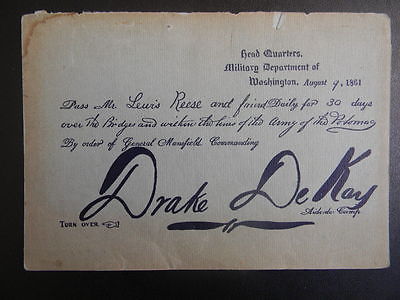 Head Quarters,
Military Department of
Washington, August 9, 1861
Pass Mr. Lewis Reese and friend Daily for 30 days
over the Bridges and within the lines of the Army of the Potomac
By order of General Mansfield Commanding
Drake De Kay
Aide-de-Camp
TURN OVER